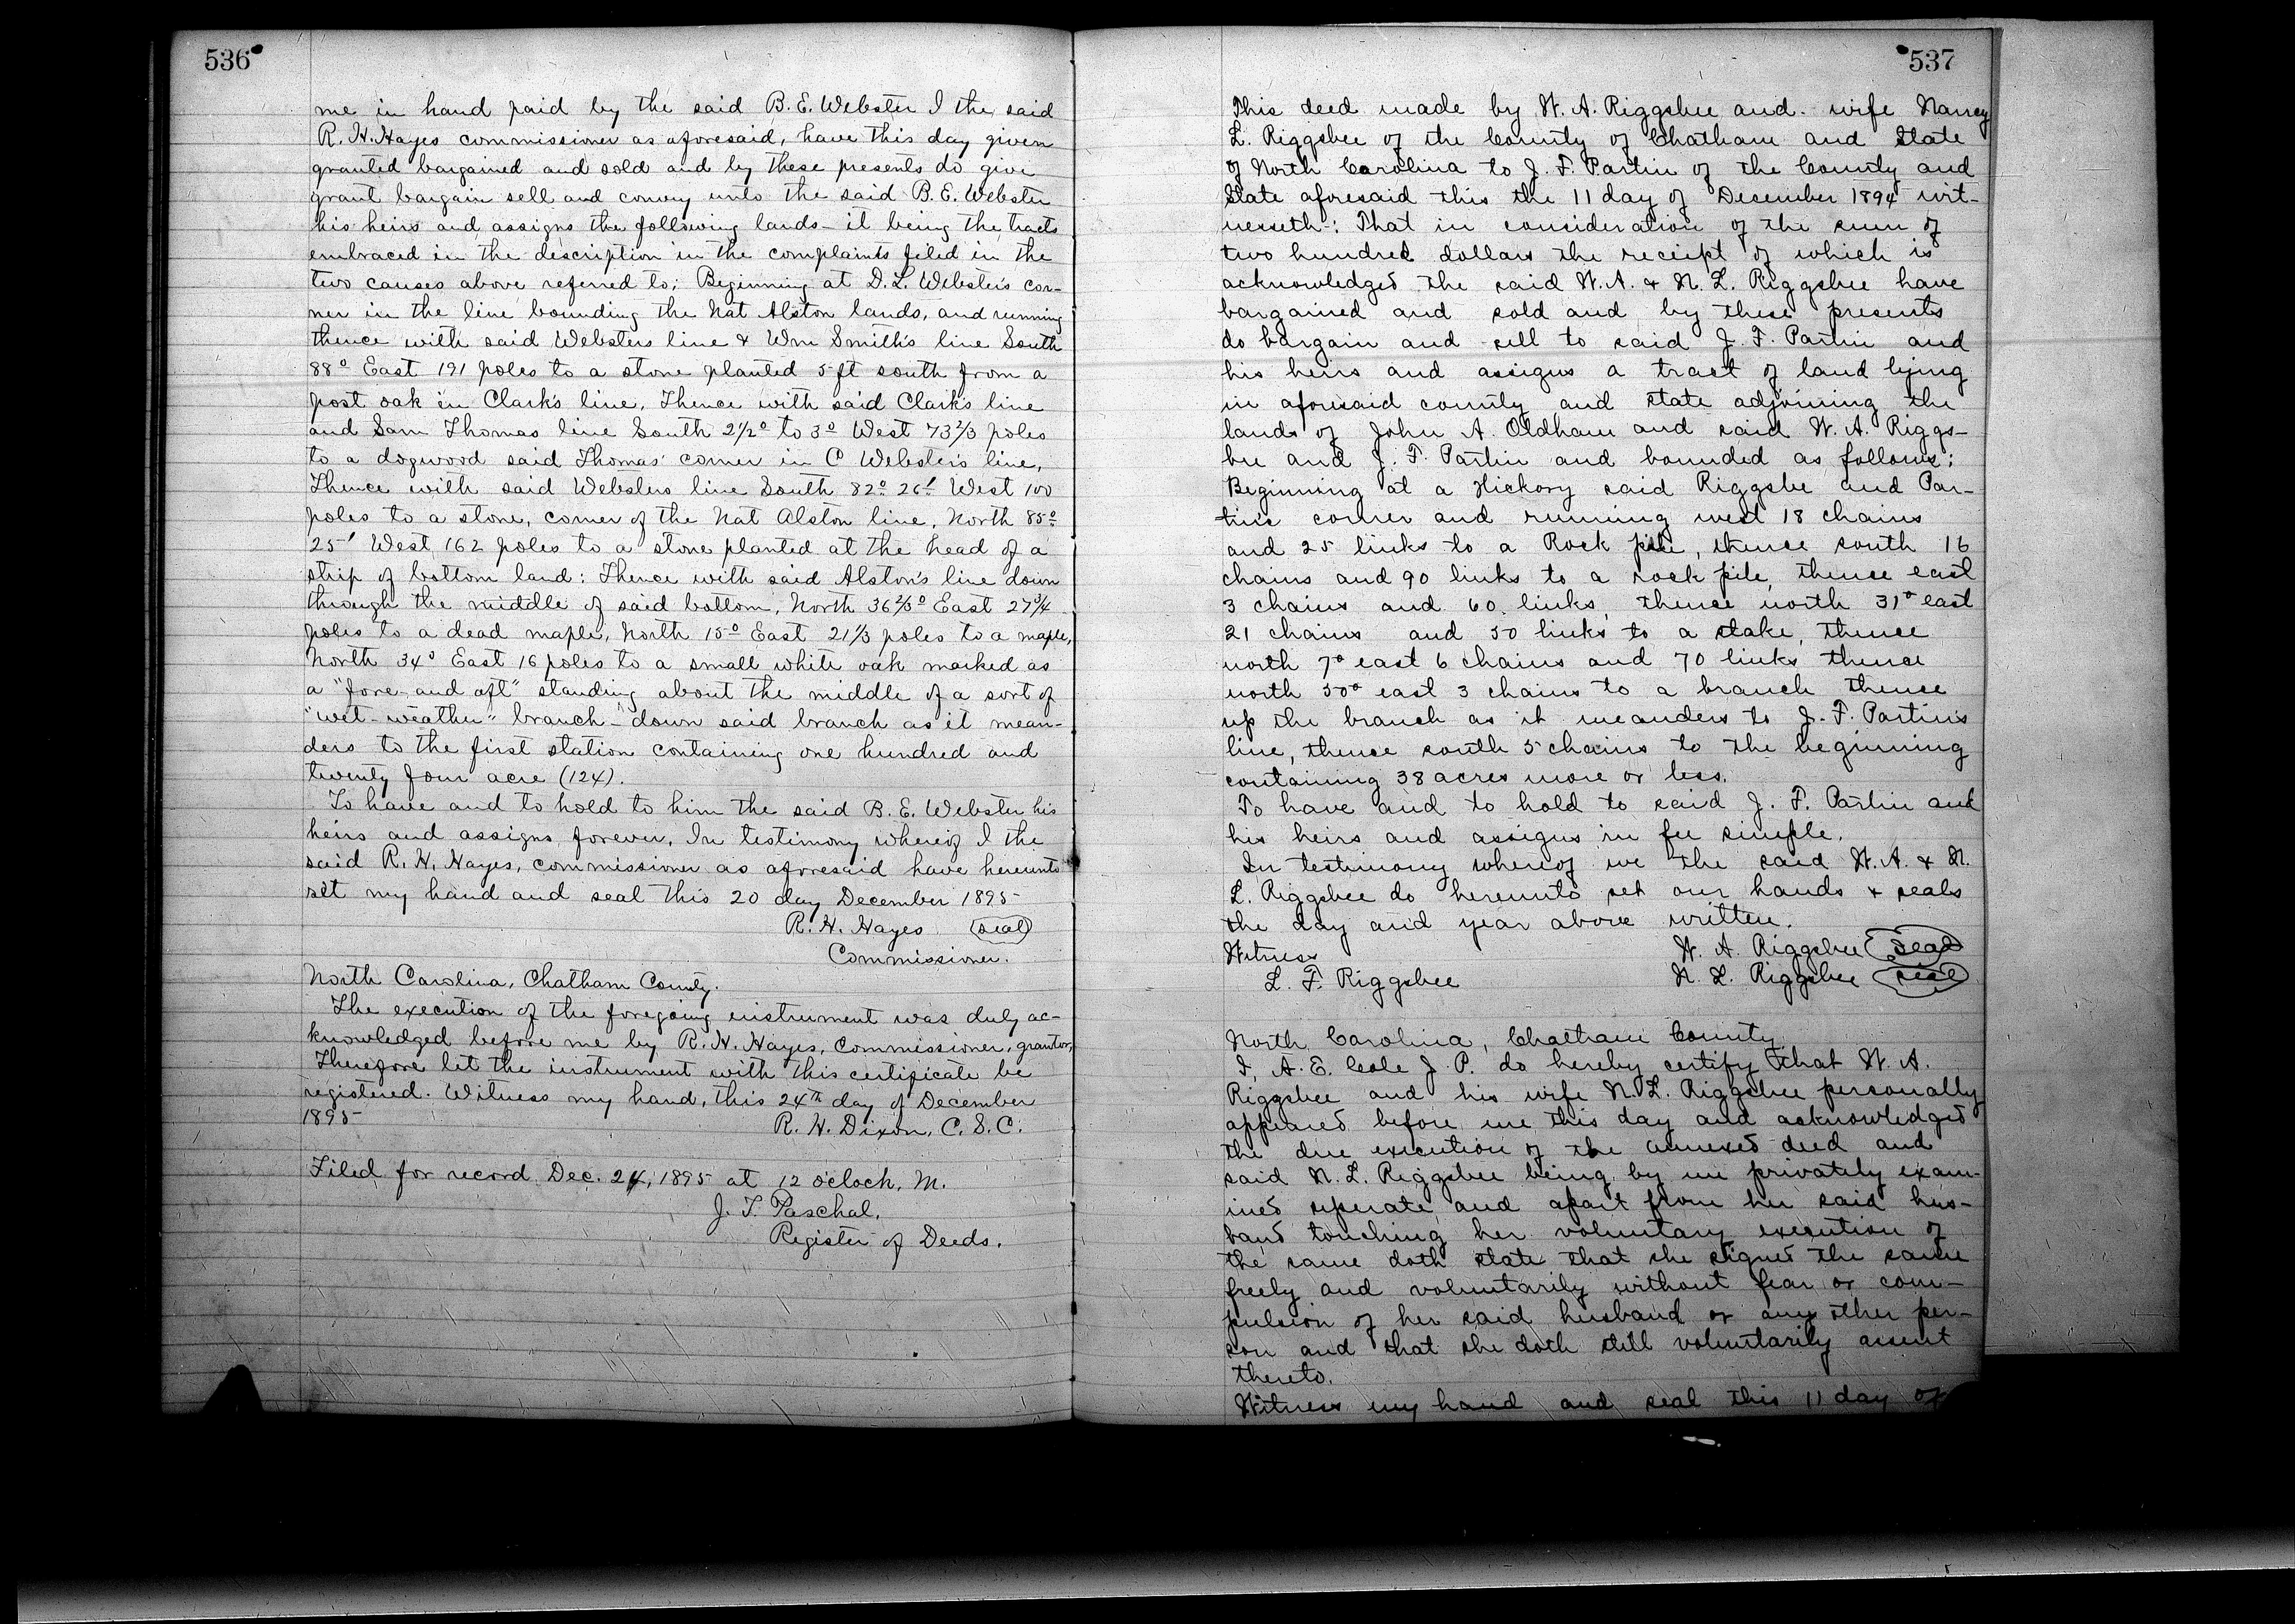 536
me in hand paid by the said B. E. Webster I the said
R. H. Hayes commissioner as aforesaid, have this day given
granted bargained and sold and by these presents do give
grant bargain sell and convey unto the said B. E. Webster
his heirs and assigns the following lands - it being the tracts
embraced in the description in the complaints filed in the
two causes above referred to; Beginning at D. L. Webster's cor-
ner in the line bounding the Nat Alston lands, and running
thence with said Websters line & Wm Smith's line South
88° East 191 poles to a stone planted 5 ft south from a
post oak in Clark's line, Thence with said Clark's line
and Sam Thomas line South 2 1/2° to 3° West 73 2/3 poles
to a dogwood said Thomas' corner in C Webster's line,
Thence with said Websters line South 82° 26' West 100
poles to a stone, corner of the Nat Alston line, North 85°
25' West 162 poles to a stone planted at the head of a
strip of bottom land: Thence with said Alston's line down
through the middle of said bottom, North 36 2/3° East 27 3/4
poles to a dead maple, North 15° East 21 1/3 poles to a maple,
North 34° East 16 poles to a small white oak marked as
a "fore and aft" standing about the middle of a sort of
"wet-weather" branch - down said branch as it mean-
ders to the first station containing one hundred and
twenty four acre (124).
To have and to hold to him the said B. E. Webster his
heirs and assigns forever, In testimony whereof I the
said R. H. Hayes, commissioner as aforesaid have hereunto
set my hand and seal this 20 day December 1895
R. H. Hayes (seal)
Commissioner.
North Carolina, Chatham County.
The execution of the foregoing instrument was duly ac-
knowledged before me by R. H. Hayes, Commissioner, grantor,
Therefore let the instrument with this certificate be
registered. Witness my hand, this 24th day of December
1895
R. H. Dixon, C. S. C.
Filed for record Dec. 24, 1895 at 12 o'clock, M.
J. T. Paschal,
Register of Deeds.
537
This deed made by W. A. Riggsbee and wife Nancy
L. Riggsbee of the County of Chatham and State
of North Carolina to J. F. Partin of the County and
State aforesaid this the 11 day of December 1894 wit-
nesseth: That in consideration of the sum of
two hundred dollars the receipt of which is
acknowledged the said W. A. & N. L. Riggsbee have
bargained and sold and by these presents
do bargain and sell to said J. F. Partin and
his heirs and assigns a tract of land lying
in aforesaid county and state adjoining the
lands of John A. Oldham and said W. A. Riggs-
bee and J. F. Partin and bounded as follows;
Beginning at a Hickory said Riggsbe and Par-
tin's corner and running west 18 chains
and 25 links to a Rock pile, thence south 16
chains and 90 links to a rock pile, thence east
3 chains and 60 links, thence north 31° east
21 chains and 50 links to a stake, thence
north 7° east 6 chains and 70 links thence
north 50° east 3 chains to a branch thence
up the branch as it meanders to J. F. Partin's
line, thence south 5 chains to the beginning
containing 38 acres more or less.
To have and to hold to said J. F. Partin and
his heirs and assigns in fee simple.
In testimony whereof we the said W. A. & N.
L. Riggsbee do hereunto set our hands & seals
the day and year above written.
Witness W. A. Riggsbee (Seal)
L. F. Riggsbee N. L. Riggsbee (seal)
North Carolina, Chatham County
I, A. E. Cole J. P. do hereby certify that W. A.
Riggsbee and his wife N. L. Riggsbee personally
appeared before me this day and acknowledged
the due execution of the annexed deed and
said N. L. Riggsbee being by me privately exam-
ined seperate and apart from her said hus-
band touching her voluntary execution of
the same doth state that she signed the same
freely and voluntarily without fear or com-
pulsion of her said husband or any other per-
son and that she doth still voluntarily assent
thereto.
Witness my hand and seal this 11 day of